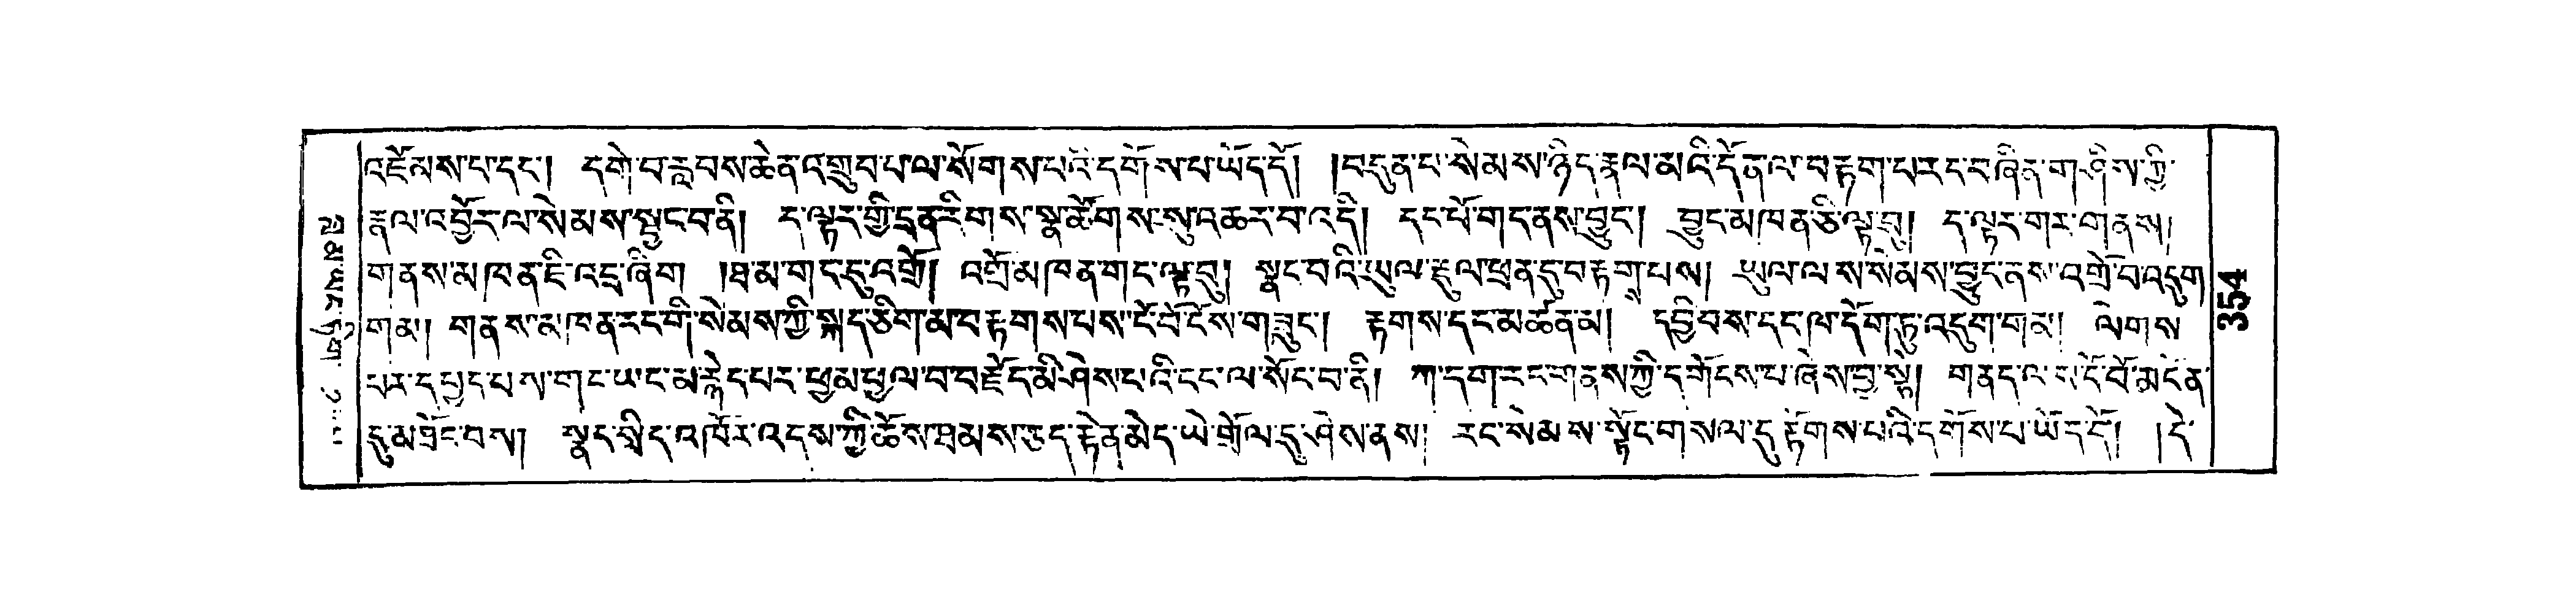 འཇོམས་པ་དང་། དགེ་བ་རླབས་ཆེན་འགྲུབ་པ་ལ་སོགས་པའི་དགོས་པ་ཡོད་དོ། །བདུན་པ་སེམས་ཉིད་རྣལ་མའི་དོན་ལ་བརྟག་པར་ང་བཞིན་གཤིས་ཀྱི་
རྣལ་འབྱོར་ལ་སེམས་སྦྱང་བ་ནི། ད་ལྟར་གྱི་དྲན་རིགས་སྣ་ཚོགས་སུ་འཆར་བ་འདི། དང་པོ་གང་ནས་བྱུང་། བྱུང་མཁན་ཅི་ལྟ་བུ། ད་ལྟར་གར་གནས།
གནས་མཁན་ཇི་འདྲ་ཞིག །ཐ་མ་གང་དུ་འགྲོ། འགྲོ་མཁན་གང་ལྟ་བུ། སྣང་བའི་ཡུལ་རྡུལ་ཕྲན་དུ་བརྟགས་པས། ཡུལ་ལས་སེམས་བྱུང་ནས་འགྲོ་བ་འདུག
གམ། གནས་མཁན་རང་གི་སེམས་ཀྱི་སྐད་ཅིག་མ་བརྟགས་པས་ངོ་བོ་ངོས་གཟུང་། རྟགས་དང་མཚན་མ། དབྱིབས་དང་ཁ་དོག་ཏུ་འདུག་གམ། ལེགས
པར་དཔྱད་པས་གང་ཡང་མ་རྙེད་པར་ཕྱམ་ཕྱལ་བ་བརྗོད་མི་ཤེས་པའི་ངང་ལ་སོང་བ་ནི། ཀ་དག་རང་གནས་ཀྱི་དགོངས་པ་ཞེས་བྱ་སྟེ། གནད་ལ་ངོ་བོ་མངོན་
དུ་མཐོང་བས། སྣང་སྲིད་འཁོར་འདས་ཀྱི་ཆོས་ཐམས་ཅད་རྟེན་མེད་ཡེ་གྲོལ་དུ་ཤེས་ནས། རང་སེམས་སྟོང་གསལ་དུ་རྟོགས་པའི་དགོས་པ་ཡོད་དོ། །དེ་